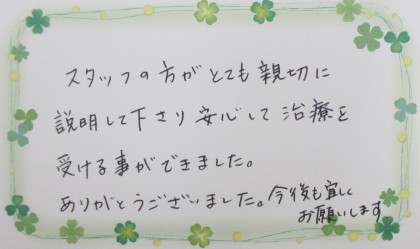 スタッフの方がとても親切に
説明して下さり安心して治療を
受ける事ができました。
ありがとうございました。今後も宜しく
お願いします